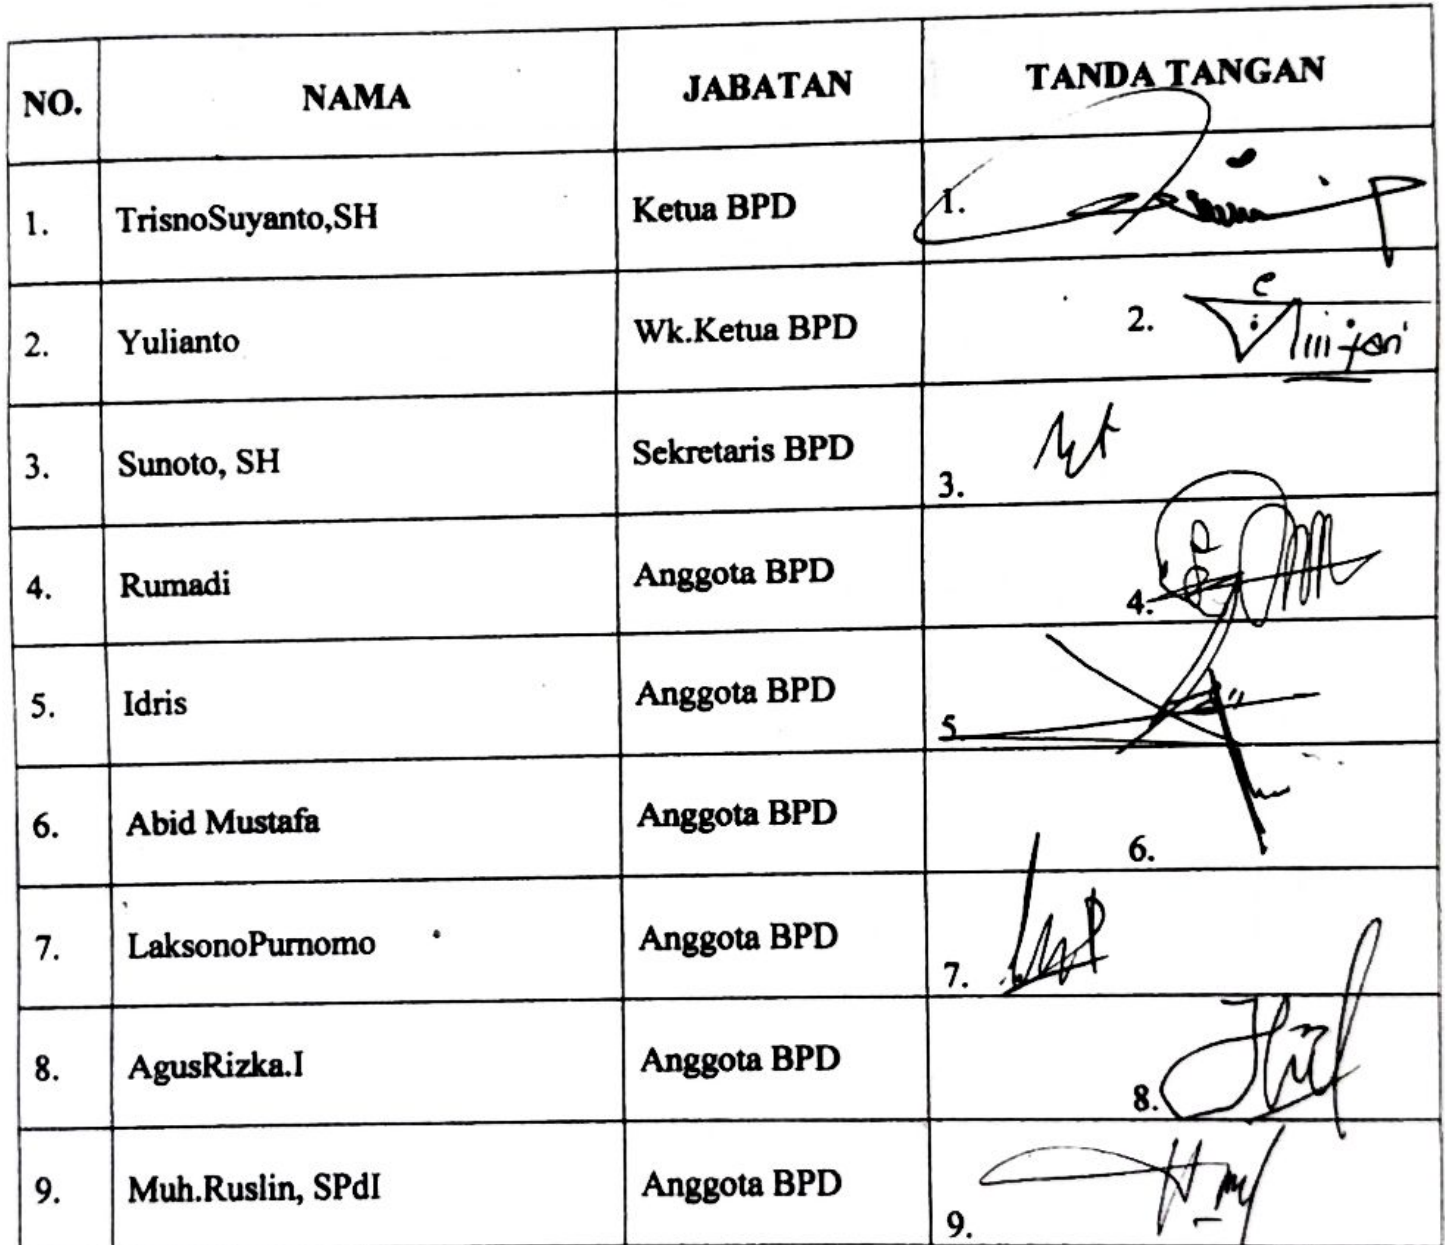 NO. NAMA JABATAN TANDA TANGAN
1. TrisnoSuyanto,SH Ketua BPD 1.
2. Yulianto Wk.Ketua BPD 2.
3. Sunoto, SH Sekretaris BPD 3.
4. Rumadi Anggota BPD 4.
5. Idris Anggota BPD 5.
6. Abid Mustafa Anggota BPD 6.
7. LaksonoPurnomo Anggota BPD 7.
8. AgusRizka.I Anggota BPD 8.
9. Muh.Ruslin, SPdI Anggota BPD 9.